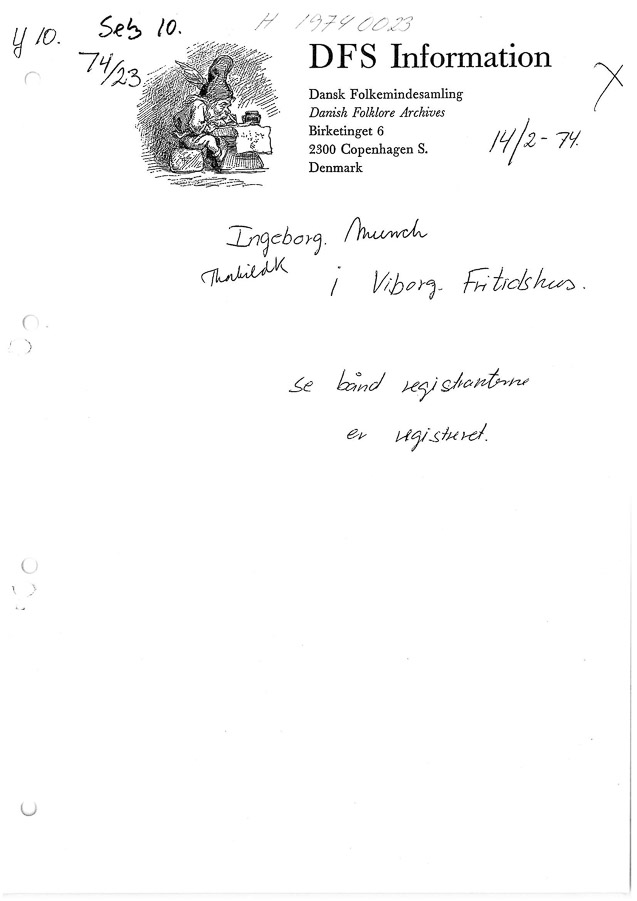 H 1974 0023
y 10. Seb 10.
74/23
DFS Information
Dansk Folkemindesamling
Danish Folklore Archives
Birketinget 6
2300 Copenhagen S.
Denmark
X
14/2-74.
Ingeborg. Munch
Thorkild K
i Viborg. Fritidshus.
se bånd registranterne
er registreret.